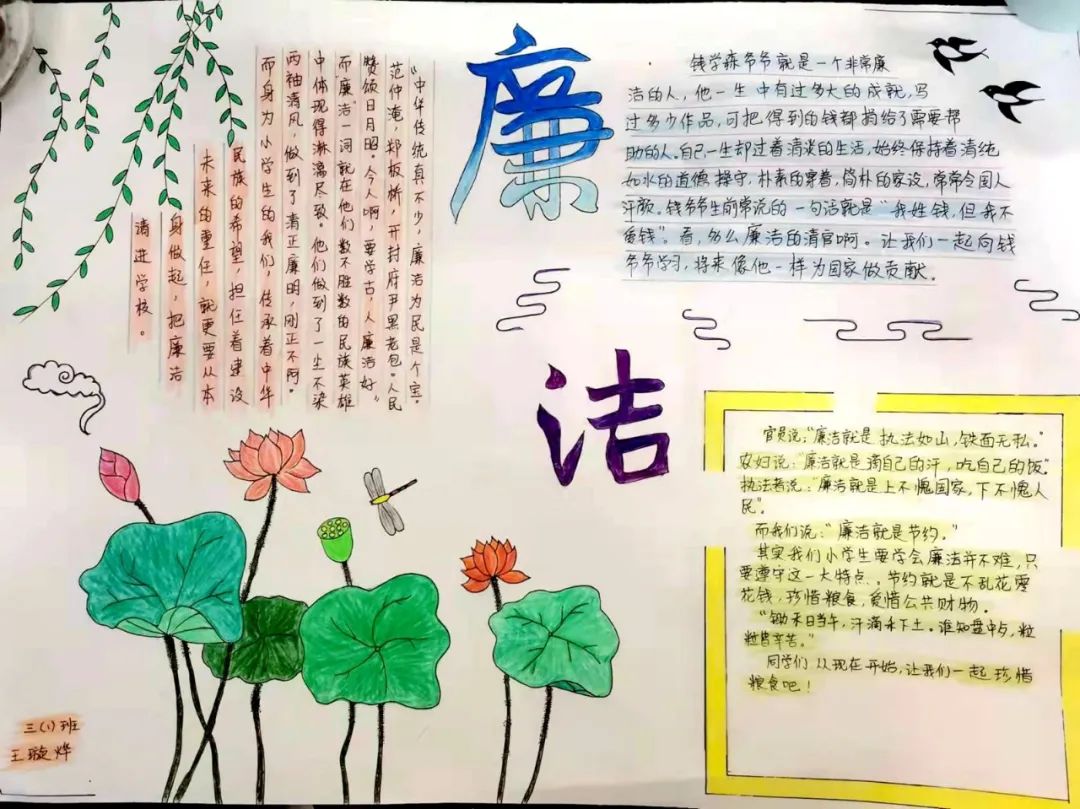 廉
洁
钱学森爷爷就是一个非常廉
洁的人，他一生中有过多大的成就，写
过多少作品，可把得到的钱都捐给了需要帮
助的人。自己一生却过着清淡的生活，始终保持着清纯
如水的道德操守，朴素的穿着，简朴的家设，常常令国人
汗颜。钱爷爷生前常说的一句洁就是"我姓钱，但我不
爱钱"。看，多么廉洁的清官啊。让我们一起向钱
爷爷学习，将来像他一样为国家做贡献。
"中华传统真不少，廉洁为民是个宝。
范仲淹，郑板桥，开封府尹黑老包。人民
赞颂日月昭。今人啊，要学古，人廉洁好"
而"廉洁"一词就在他们数不胜数的民族英雄
中体现得淋漓尽致。他们做到了一尘不染
两袖清风，做到了清正廉明，刚正不阿。
而身为小学生的我们，传承着中华
民族的希望，担任着建设
未来的重任，就更要从本
身做起，把廉洁
请进学校。
官员说："廉洁就是执法如山，铁面无私。"
农妇说："廉洁就是滴自己的汗，吃自己的饭"。
执法者说："廉洁就是上不愧国家，下不愧人
民"。
而我们说："廉洁就是节约。"
其实我们小学生要学会廉洁并不难，只
要遵守这一大特点、节约就是不乱花零
花钱，珍惜粮食，爱惜公共财物。
"锄禾日当午，汗滴禾下土。谁知盘中，粒
粒皆辛苦。"
同学们从现在开始，让我们一起珍惜
粮食吧！
三(1)班
王璇烨